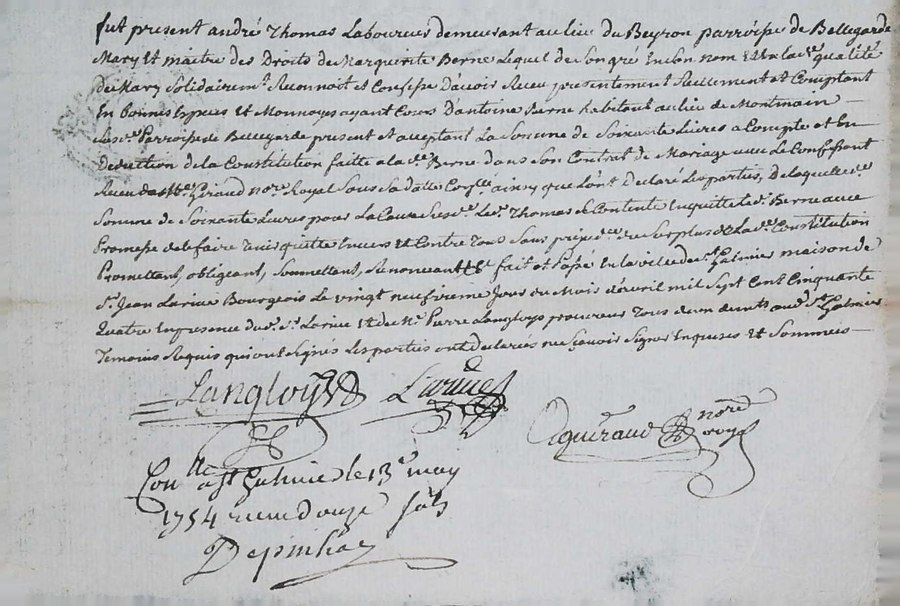 fut present andré Thomas Laboureur demeurant au lieu du Beyron parroisse de Bellegarde
Mary et maitre des Droits de Marguerite Berne Lequel de son gré en son nom et en lad.e qualité
de Mary Solidairemt Reconnoit et Confesse D'avoir Receu presentement Reellement et Comptant
En bonnes Especes et Monnoyes ayant Cours D'antoine Berne habitant au lieu de Montmain
Parroisse de Bellegarde present et acceptant La Somme de Soixante Livres a Compte et En
Deduction de la Constitution faitte a lad.e Berne dans Son Contrat de Mariage avec Le Confessant
Receu Me Giraud nore Royal Sous Sa datte ainsy que L'ont Declaré Les parties, De laquelle
Somme de Soixante Livres pour La Cause Led. Thomas Se Contente En quitte Led. Berne avec
Promesse de le faire tenir quitte Envers et Contre Tous Sans prejud.ce du Surplus de Lad.e Constitution
Promettant, obligeant, Soumettant, Renonceant &c fait et Passé En la ville de St Galmier maison de
Sr Jean Larive Bourgeois Le vingt neuf Jour du Mois d'avril mil Sept Cent Cinquante
Quatre En presence dud. Sr Larive Et de Me Pierre Langloys procureur Tous deux aud. St Galmier
Temoins Requis qui ont Signés Les parties ont declarées ne Sçavoir Signer Enquises et Sommées
Langloys Larive
giraud nore royal
Conlle a St Galmier le 13e may
1754 receu douze sols
Depinhac